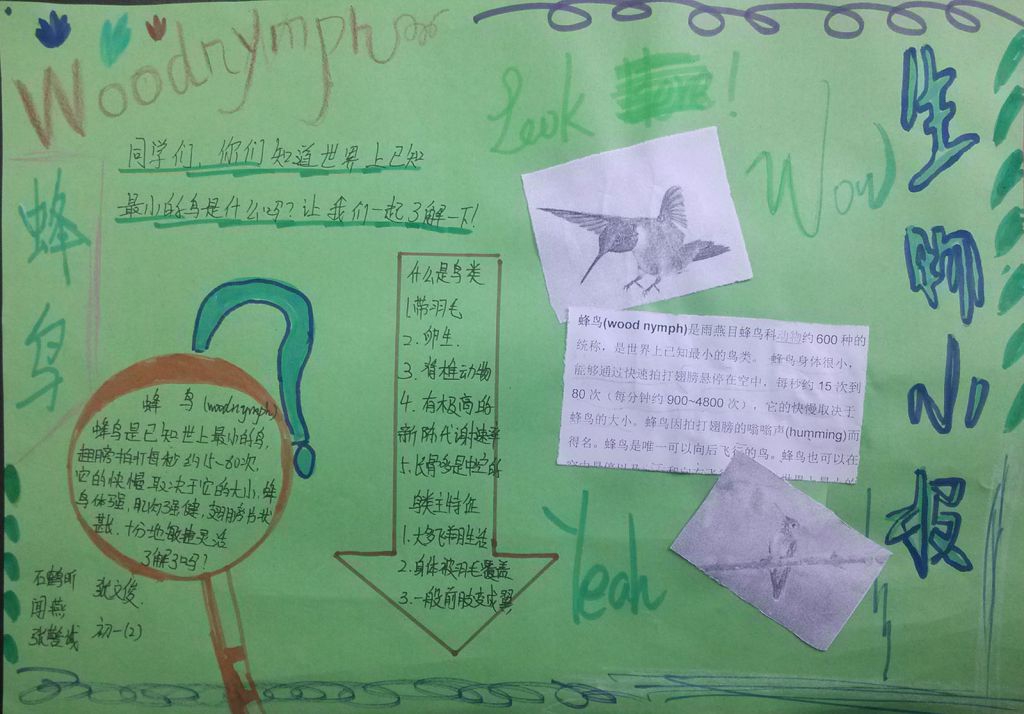 Woodnymph
Look Here!
Wow
生物小报
同学们，你们知道世界上已知
最小的鸟是什么吗？让我们一起了解一下！
蜂鸟
什么是鸟类
1.带羽毛
2.卵生.
3.脊椎动物
4.有极高的
新陈代谢速率
5.长骨多是中空的
鸟类主特征
1.大多飞翔生活
2.身体被羽毛覆盖
3.一般前肢变成翼
蜂鸟(wood nymph)是雨燕目蜂鸟科动物约600 种的
统称，是世界上已知最小的鸟类。 蜂鸟身体很小，
能够通过快速拍打翅膀悬停在空中，每秒约 15 次到
80 次（每分钟约 900~4800 次），它的快慢取决于
蜂鸟的大小。蜂鸟因拍打翅膀的嗡嗡声(humming)而
得名。蜂鸟是唯一可以向后飞行的鸟。蜂鸟也可以在
蜂 鸟 (woodnymph)
蜂鸟是已知世上最小的鸟,
翅膀拍打每秒约15~80次,
它的快慢取决于它的大小,蜂
鸟体强,肌肉强健,翅膀片状
甚长,十分地敏捷灵活
了解了吗？
Yeah
闻燕
张文俊.
初一(2)